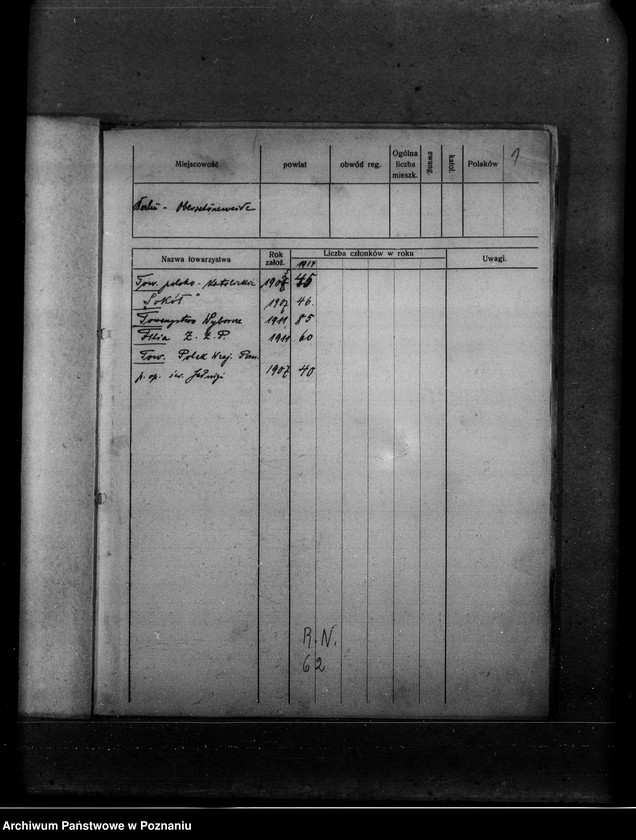 Miejscowość powiat obwód reg. Ogólna liczba mieszk. ewang. katol. Polaków 1
Berlin - Oberschöneweide
Nazwa towarzystwa Rok założ. Liczba członków w roku Uwagi.
1914
Tow. polsko-katolickie 45
"Sokół" 1907 46
Towarzystwo Wyborcze 1911 85
Filia Z. Z. P. 1911 60
Tow. Polek Wzaj. Pom.
p. op. św. Jadwigi 1907 40
R. N.
62
Archiwum Państwowe w Poznaniu